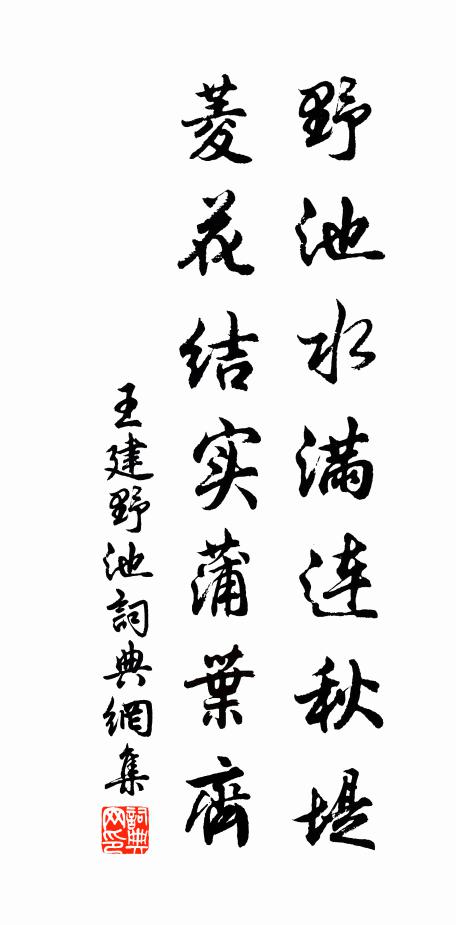 野池水满连秋堤
菱花结实蒲葉齊
王建野池詞典網集
詞典网印